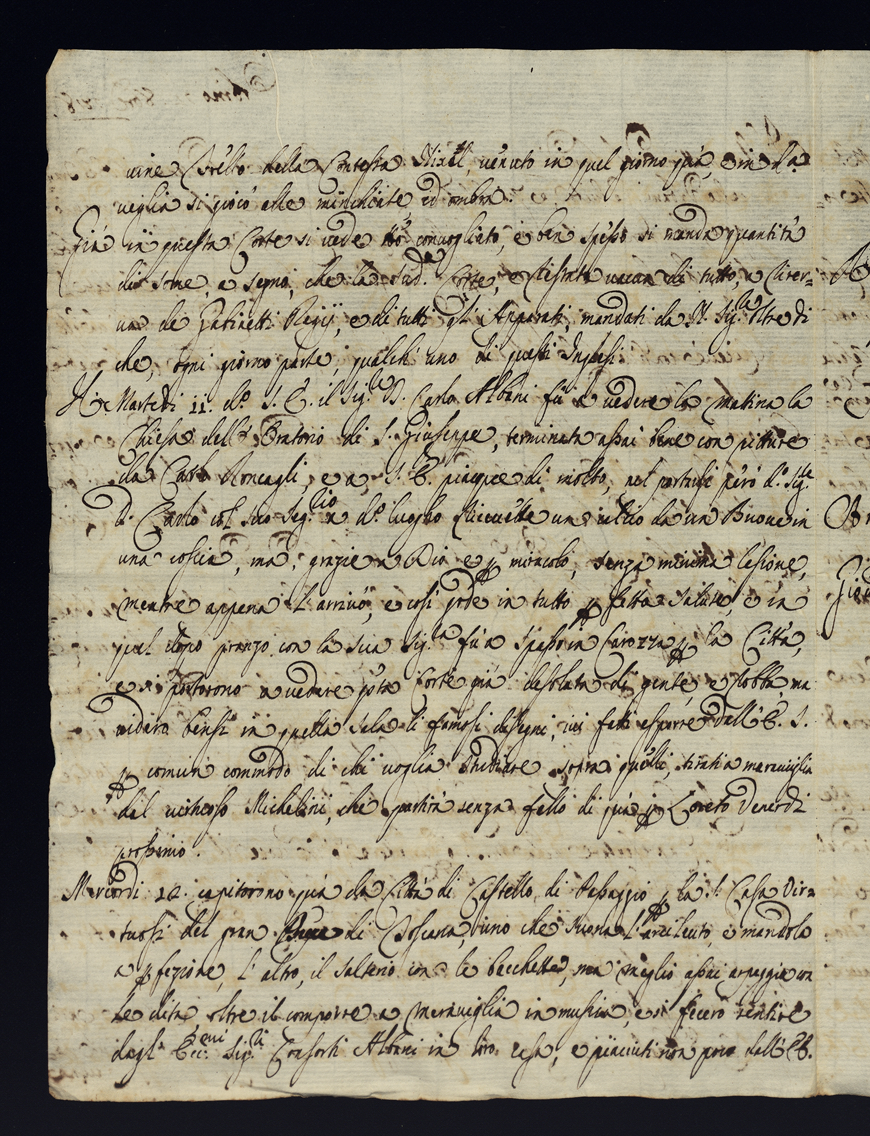 vine Ciselto della Contessa Niel, venuto in quel giorno quà, e in da
veglia si giocò alle minchiate, ed ombre.
Già in questa Corte si vede tto convogliato, e ben spesso si manda quantità
di some, a segno, che la sud.a Corte, è restata vacua di tutto, e
va de Gabinetti Regij, e di tutti gl' Apparati, mandati da N. Sig.re oltre di
che, ogni giorno parte, qualch' uno di questi Inglesi.
A Martedì 11. d.o S. E. il Sig.re D. Carlo Albani fù a vedere la matina la
Chiesa dell' Oratorio di S. Giuseppe, terminata assai bene con pitture
da Catt. Roncagli, e a S. E. piacque di molto, nel portarsi però d.o Sig.re
D. Carlo col suo Seg.rio a d.o luogo ricevette un calcio da un Buove in
una coscia, mà, grazie a Dio e p miracolo, senza minima lesione,
mentre appena l'arrivò, e così gode in tutto pfetta salute, e in
quel dopo pranzo con la sua Sig.ra fù a spasso in Carozza p la Città,
e si portorono a vedere q'sta Corte già desolata di gente, e robba, ma
vidaro bensì in quella sala li famosi disegni, ivi fatti esporre dall' E. S.
p comun commodo di chi voglia studiare sopra quelli, tirati a maraviglia
dal virtuoso Michelini, che partirà senza fallo di quà p Loreto Venerdì
prossimo.
Mercordì 12. capitorono quà da Città di Castello di Passaggio p la S. Casa Vir=
tuosi del gran Duca di Toscana, uno che suona l'arcileuto, e mandola
a pfezione, l'altro, il salterio con le bacchette, ma meglio assai arpeggia con
le dita oltre il comporre a meraviglia in musica, e si fecero sentire
dagl' Ecc.mi Sig.ri Consorti Albani in loro casa, e piaciuti non poco dall' E.